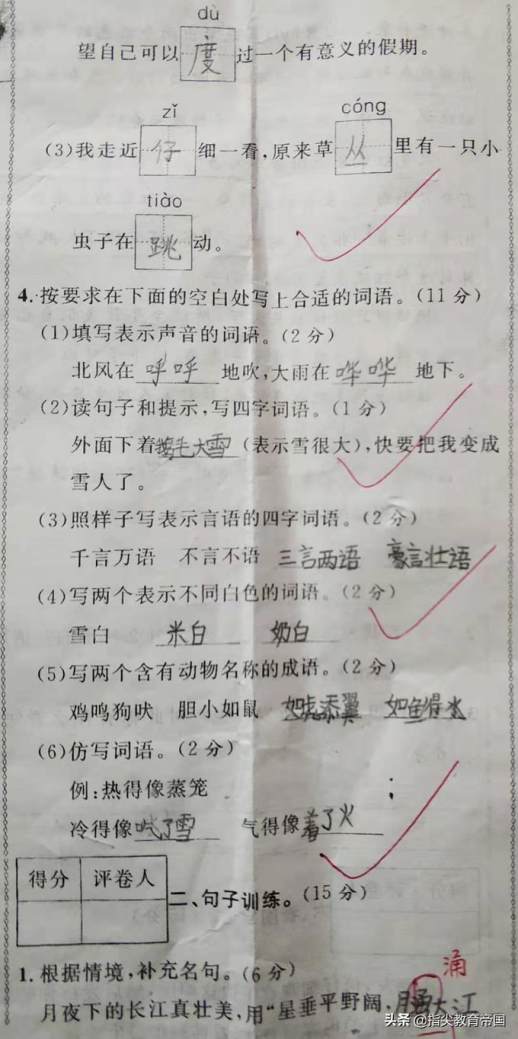 dù
望自己可以度过一个有意义的假期。
zǐ cóng
(3)我走近仔细一看,原来草丛里有一只小
tiào
虫子在跳动。
4.按要求在下面的空白处写上合适的词语。(11分)
(1)填写表示声音的词语。(2分)
北风在呼呼地吹,大雨在哗哗地下。
(2)读句子和提示,写四字词语。(1分)
外面下着鹅毛大雪(表示雪很大),快要把我变成
雪人了。
(3)照样子写表示言语的四字词语。(2分)
千言万语 不言不语 三言两语 豪言壮语
(4)写两个表示不同白色的词语。(2分)
雪白 米白 奶白
(5)写两个含有动物名称的成语。(2分)
鸡鸣狗吠 胆小如鼠 如虎添翼 如鱼得水
(6)仿写词语。(2分)
例:热得像蒸笼
冷得像吃了雪 气得像着了火
得分 评卷人
二、句子训练。(15分)
1.根据情境,补充名句。(6分)
涌
月夜下的长江真壮美,用“星垂平野阔,月大江
头条 @指尖教育帝国